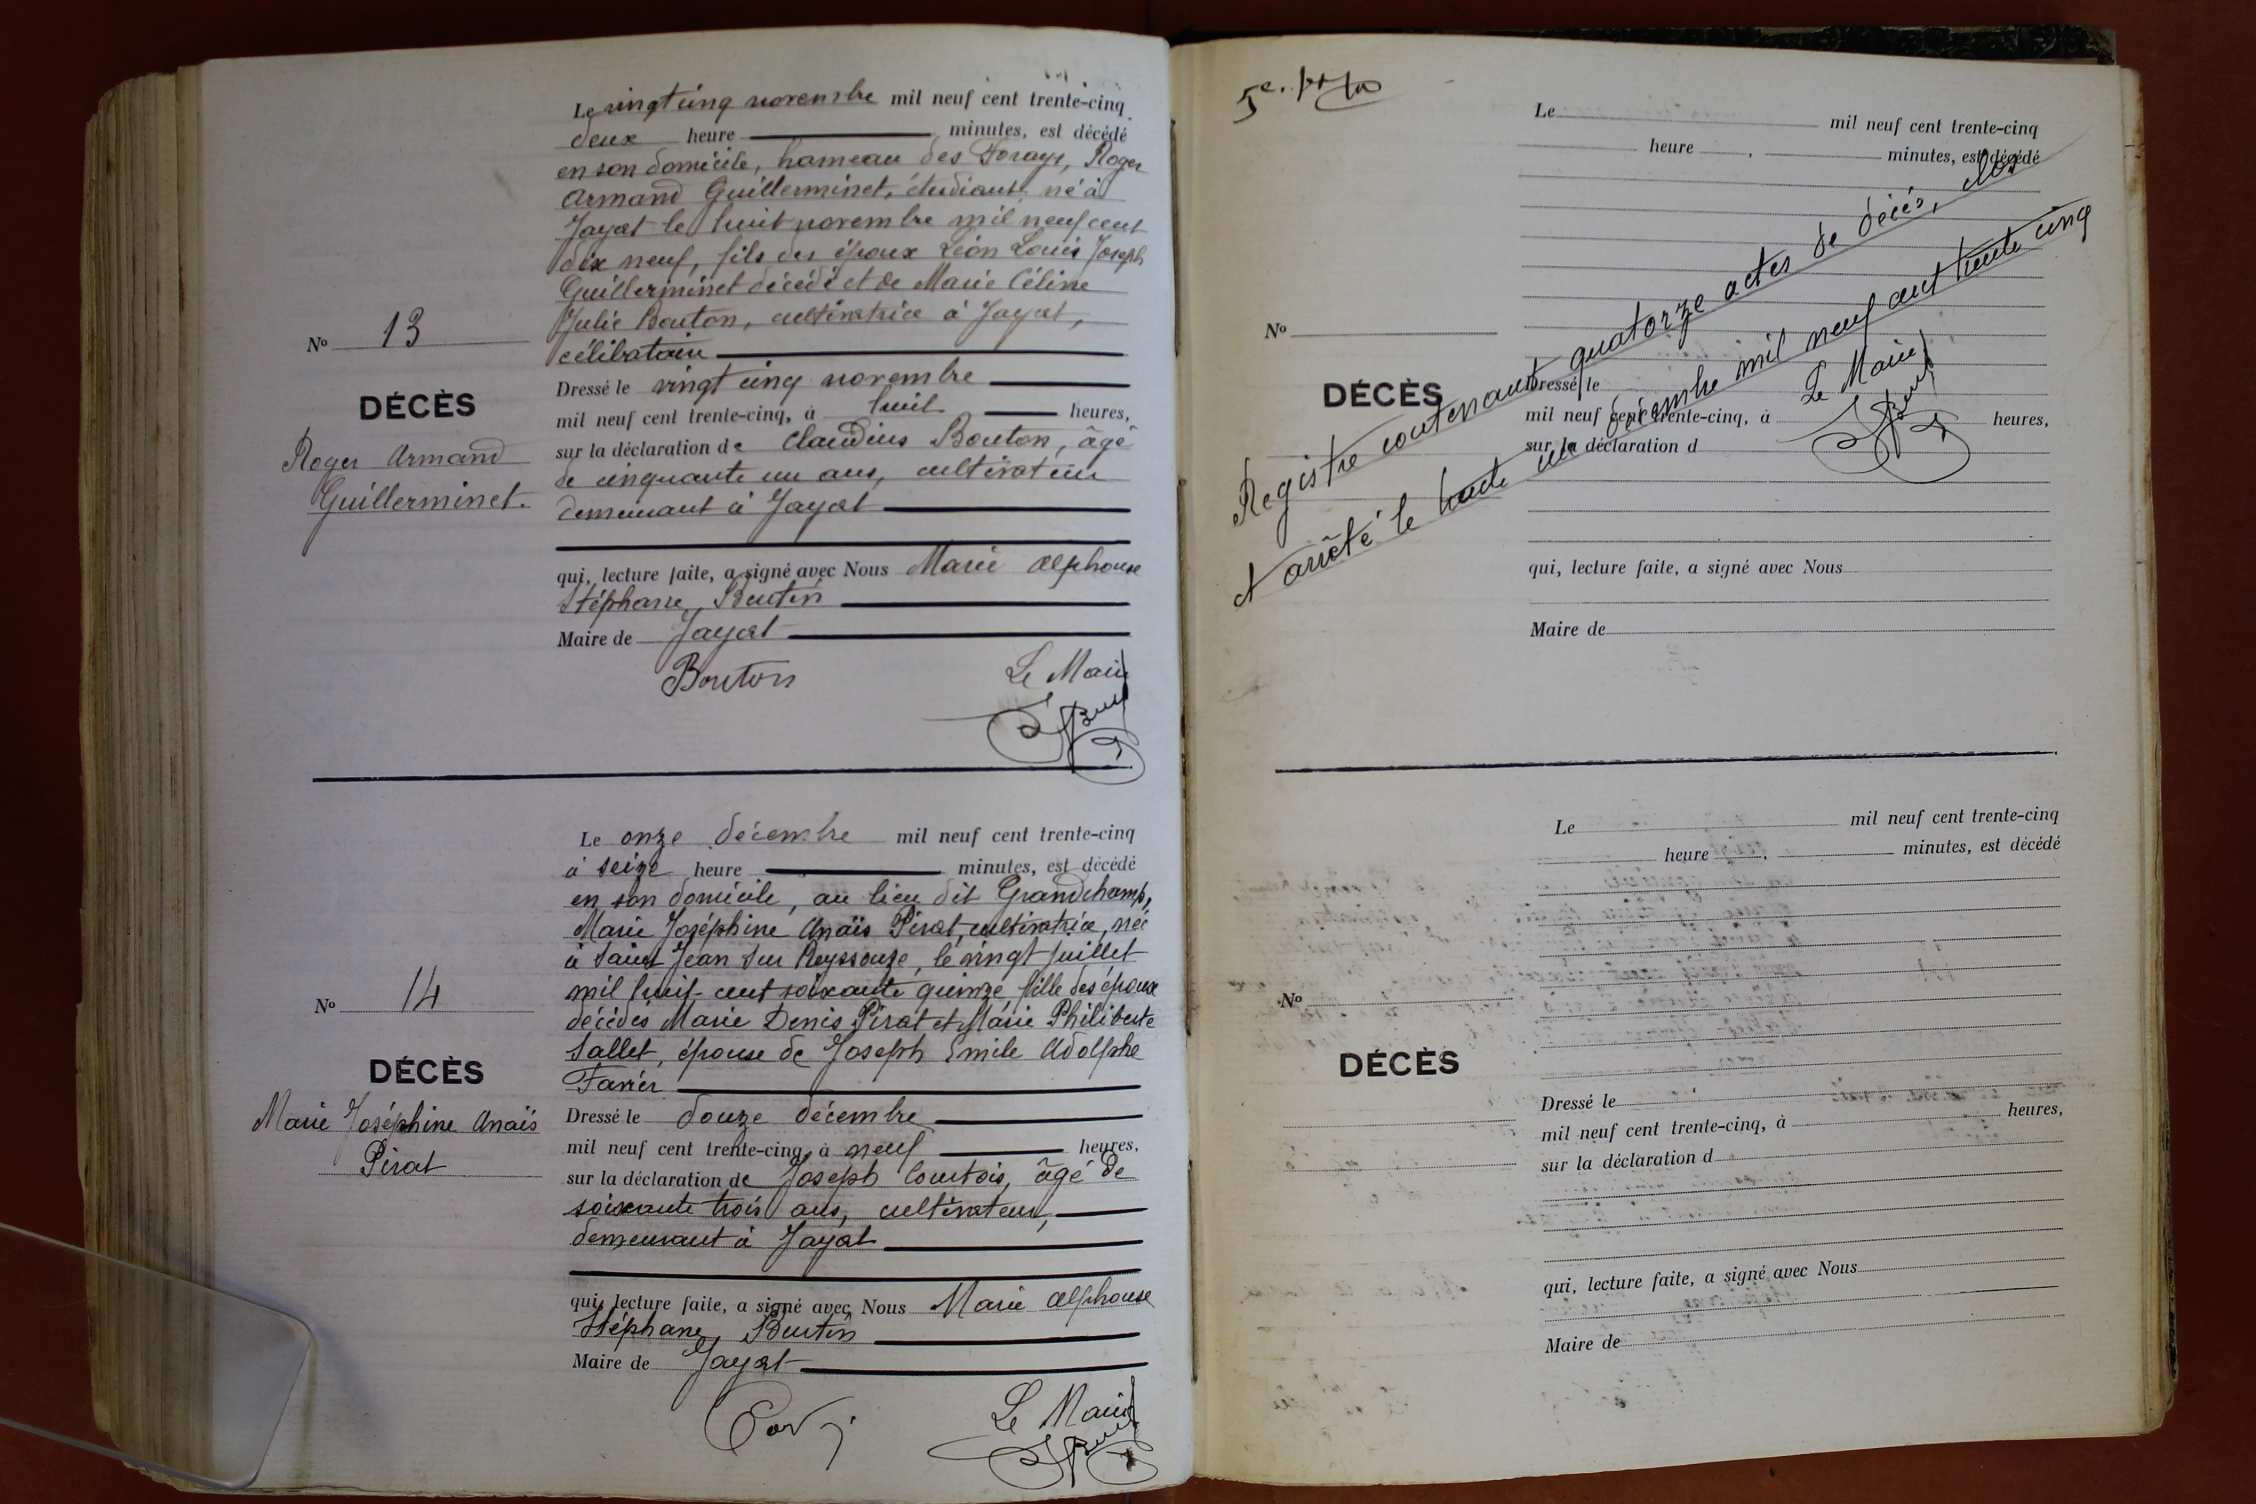 Le vingt cinq novembre mil neuf cent trente-cinq
deux heure minutes, est décédé
en son domicile, hameau des Forays, Roger
Armand Guillerminet, étudiant, né à
Jayat le huit novembre mil neuf cent
dix neuf, fils des époux Léon Louis Joseph
Guillerminet décédé et de Marie Céline
Julie Bouton, cultivatrice à Jayat,
célibataire
No 13
DÉCÈS
Roger Armand
Guillerminet.
Dressé le vingt cinq novembre
mil neuf cent trente-cinq, à huit heures,
sur la déclaration de Claudius Bouton, âgé
de cinquante un ans, cultivateur
demeurant à Jayat
qui, lecture faite, a signé avec Nous Marie Alphonse
Stéphane Beutin
Maire de Jayat
Bouton Le Maire
Le onze décembre mil neuf cent trente-cinq
à seize heure minutes, est décédé
en son domicile, au lieu dit Grandchamp,
Marie Joséphine Anaïs Pirat, cultivatrice, née
à Saint Jean sur Reyssouze, le vingt juillet
mil huit-cent soixante quinze, fille des époux
décédés Marie Denis Pirat et Marie Philiberte
Sallet, épouse de Joseph Emile Adolphe
Favier
No 14
DÉCÈS
Marie Joséphine Anaïs
Pirat
Dressé le douze décembre
mil neuf cent trente-cinq, à neuf heures,
sur la déclaration de Joseph Courtois, âgé de
soixante trois ans, cultivateur,
demeurant à Jayat
qui, lecture faite, a signé avec Nous Marie Alphonse
Stéphane Beutin
Maire de Jayat
Le Maire
5e.
Le mil neuf cent trente-cinq
heure minutes, est décédé
No
DÉCÈS
Dressé le
mil neuf cent trente-cinq, à heures,
sur la déclaration d
qui, lecture faite, a signé avec Nous
Maire de
Registre contenant quatorze actes de décès, clos
et arrêté le trente un décembre mil neuf cent trente cinq
Le Maire
Le mil neuf cent trente-cinq
heure minutes, est décédé
No
DÉCÈS
Dressé le
mil neuf cent trente-cinq, à heures,
sur la déclaration d
qui, lecture faite, a signé avec Nous
Maire de